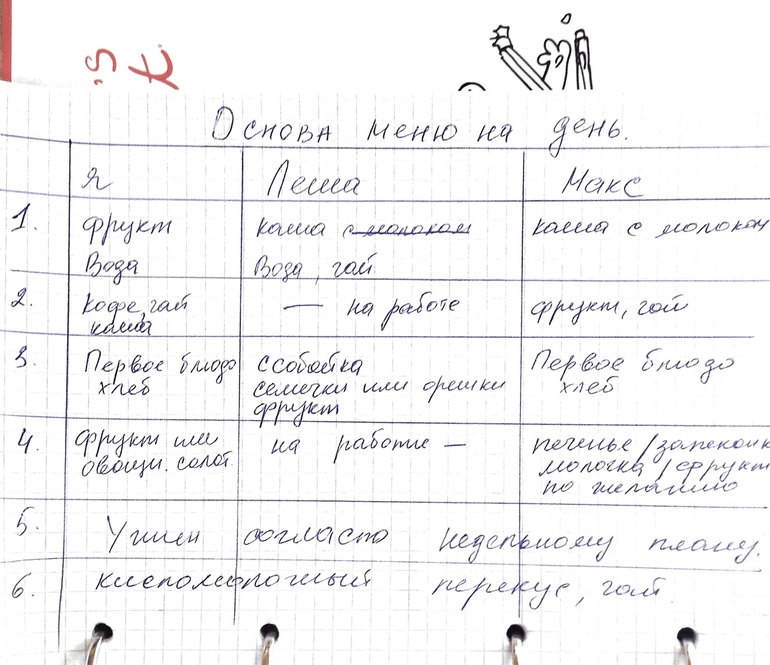 Основа меню на день.
Я Леша Макс
1. фрукт каша с молоком каша с молоком
Вода Вода, чай
2. кофе, чай — на работе фрукт, чай
каша
3. Первое блюдо ссобойка Первое блюдо
хлеб семечки или орешки хлеб
фрукт
4. фрукт или на работе — печенье / запеканк
овощн. салат. молочка / фрукт
по желанию
5. Ужин согласно недельному плану.
6. кисломолочный перекус, чай.